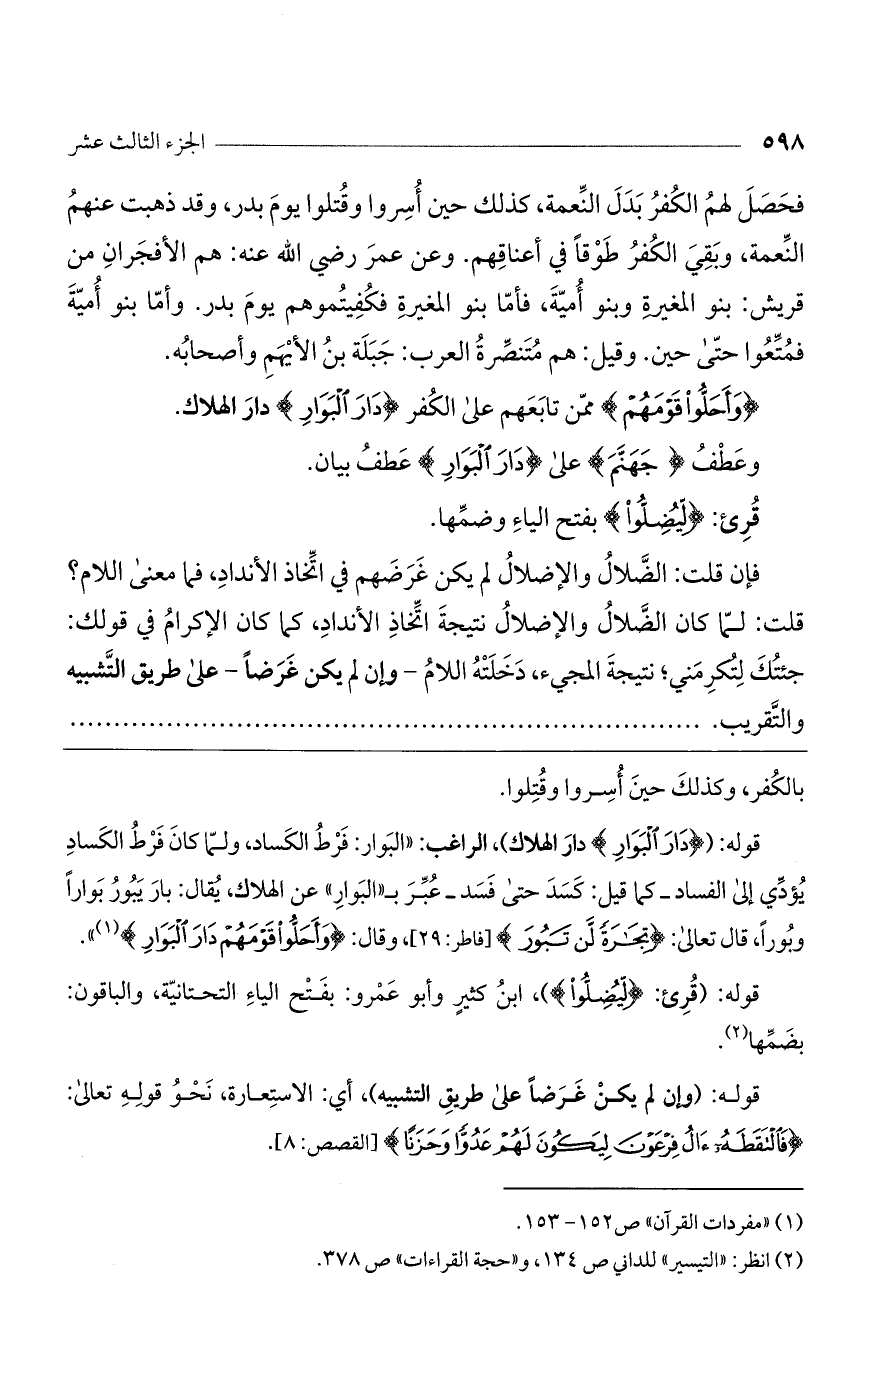 ٥٩٨ ــــــــــــــــــــ الجزء الثالث عشر
فحَصَلَ لهمُ الكُفرُ بَدَلَ النِّعمة، كذلك حين أُسِروا وقُتلوا يومَ بدر، وقد ذهبت عنهمُ
النِّعمة، وبَقِيَ الكُفرُ طَوْقاً في أعناقِهم. وعن عمرَ رضي الله عنه: هم الأفجَرانِ من
قريش: بنو المغيرةِ وبنو أُميّة، فأمّا بنو المغيرةِ فكُفِيتُموهم يومَ بدر. وأمّا بنو أُميّةَ
فمُتِّعُوا حتّىٰ حين. وقيل: هم مُتَنصِّرةُ العرب: جَبَلَة بنُ الأيْهَمِ وأصحابُه.
﴿وَأَحَلُّواْ قَوْمَهُمْ﴾ ممّن تابَعَهم علىٰ الكُفر ﴿دَارَ ٱلْبَوَارِ﴾ دارَ الهلاك.
وعَطْفُ ﴿جَهَنَّمَ﴾ علىٰ ﴿دَارَ ٱلْبَوَارِ﴾ عَطفُ بيان.
قُرِئ: ﴿لِّيُضِلُّواْ﴾ بفتح الياءِ وضمِّها.
فإن قلت: الضَّلالُ والإضلالُ لم يكن غَرَضَهم في اتِّخاذ الأندادِ، فما معنىٰ اللام؟
قلت: لـمّا كان الضَّلالُ والإضلالُ نتيجةَ اتِّخاذِ الأندادِ، كما كان الإكرامُ في قولك:
جئتُكَ لِتُكرِمَني؛ نتيجةَ المجيء، دَخَلَتْهُ اللامُ - وإن لم يكن غَرَضاً - علىٰ طريق التَّشبيه
والتَّقريب. ........................................................................
بالكُفر، وكذلكَ حينَ أُسِـروا وقُتِلوا.
قوله: (﴿دَارَ ٱلْبَوَارِ﴾ دارَ الهلاك)، الراغب: «البَوار: فَرْطُ الكَساد، ولـمّا كانَ فَرْطُ الكَسادِ
يُؤدِّي إلىٰ الفساد ـ كما قيل: كَسَدَ حتىٰ فَسَد ـ عُبِّرَ بـ«البَوارِ» عن الهلاك، يُقال: بارَ يَبُورُ بَواراً
وبُوراً، قال تعالىٰ: ﴿تِجَـٰرَةً لَّن تَبُورَ﴾ [فاطر: ٢٩]، وقال: ﴿وَأَحَلُّواْ قَوْمَهُمْ دَارَ ٱلْبَوَارِ﴾(١)».
قوله: (قُرِئ: ﴿لِّيُضِلُّواْ﴾)، ابنُ كثيرٍ وأبو عَمْرو: بفَتْح الياءِ التحتانيّة، والباقون:
بضَمِّها(٢).
قولـه: (وإن لم يكـنْ غَـرَضاً علىٰ طريقِ التشبيه)، أي: الاستِعـارة، نَحْـوُ قولـهِ تعالىٰ:
﴿فَٱلْتَقَطَهُۥٓ ءَالُ فِرْعَوْنَ لِيَكُونَ لَهُمْ عَدُوًّا وَحَزَنًا﴾ [القصص: ٨].
(١) «مفردات القرآن» ص١٥٢- ١٥٣.
(٢) انظر: «التيسير» للداني ص ١٣٤، و«حجة القراءات» ص ٣٧٨.